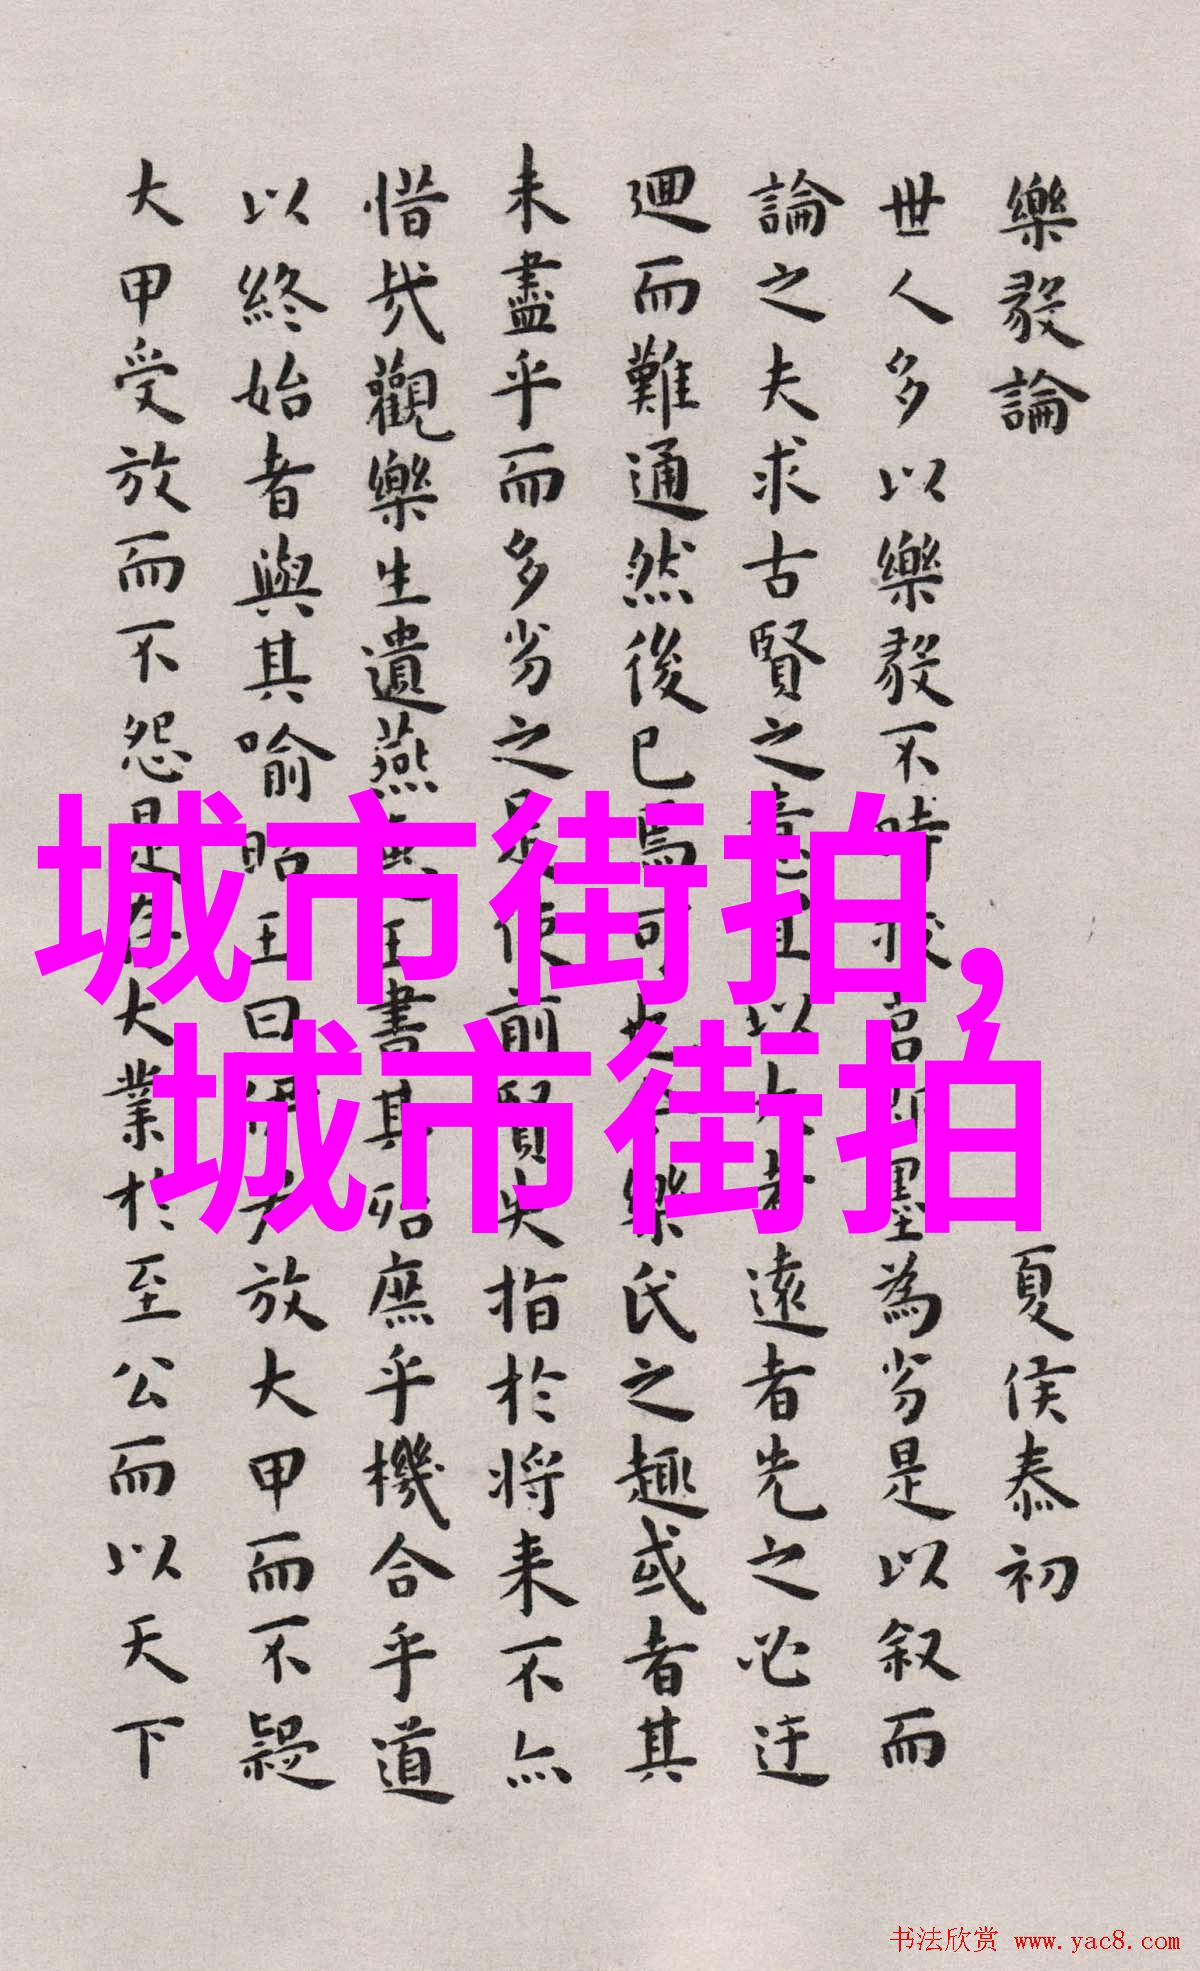 樂毅論 夏侯泰初
世人多以樂毅不時 為劣是以叙而
論之夫求古賢之 以 遠者先之必迂
迴而難通然後已焉可 樂氏之趣或者其
未盡乎而多劣之是使前賢失指於將来不亦
惜哉觀樂生遺燕 王書其殆庶乎機合乎道
以終始者與其喻昭王曰 放大甲而不疑
大甲受放而不怨是 大業於至公而以天下
城市街拍,
城市街拍
书法欣赏 www.yac8.com